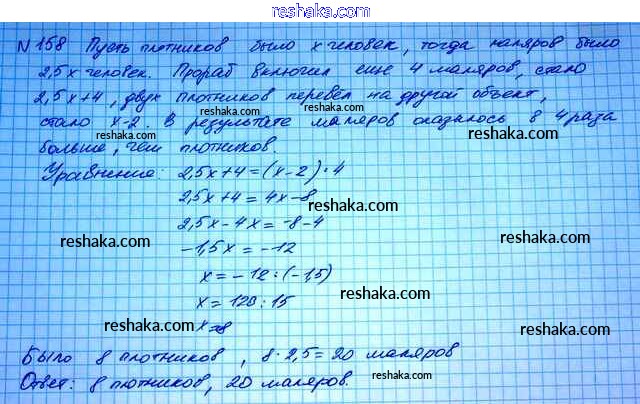 reshaka.com
№158 Пусть плотников было x человек, тогда маляров было
2,5x человек. Прораб включил еще 4 маляров, стало
2,5x+4, двух плотников перевёл на другой объект,
стало x-2. В результате маляров оказалось в 4 раза
reshaka.com
reshaka.com
больше, чем плотников.
reshaka.com
Уравнение: 2,5x+4=(x-2)·4
2,5x+4=4x-8
reshaka.com
2,5x-4x=-8-4
reshaka.com
reshaka.com
-1,5x=-12
x=-12:(-1,5)
reshaka.com
x=120:15
reshaka.com
reshaka.com
x=8
Было 8 плотников, 8·2,5=20 маляров
Ответ: 8 плотников, 20 маляров.
reshaka.com
reshaka.com